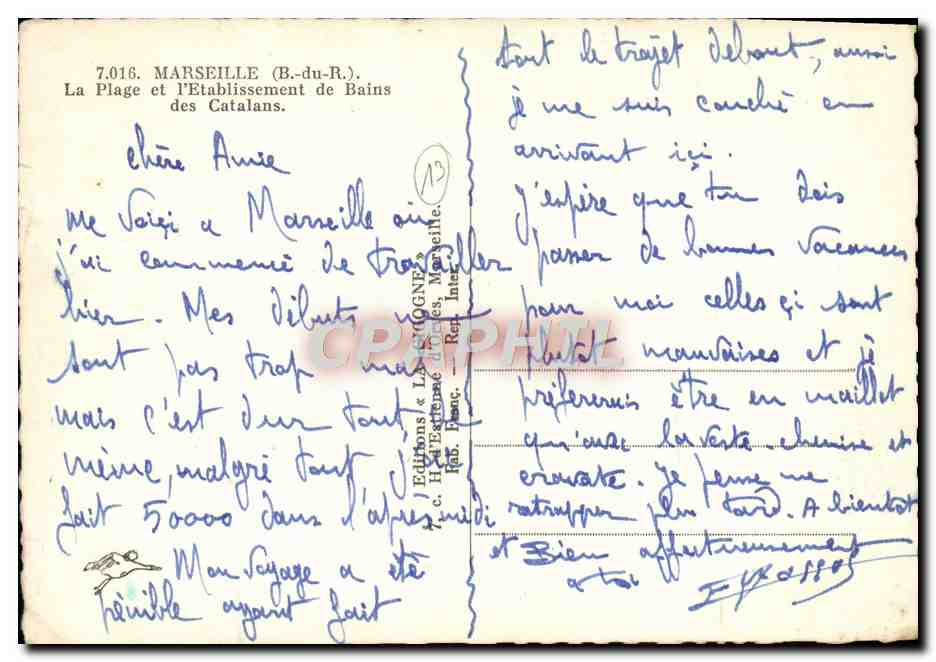 7.016. MARSEILLE (B.-du-R.).
La Plage et l'Etablissement de Bains
des Catalans.
13
Chère Amie
me voiçi a Marseille où
j'ai commencé de travailler
hier. Mes débuts ne
sont pas trop mal
mais c'est dur tout de
même, malgré tout j'ai
fait 50000 dans l'après midi
Mon voyage a été
pénible ayant fait
Editions « LA CIGOGNE »
7, c. H. d'Estienne d'Orves, Marseille.
Fab. Franç. — Rep. Inter.
CPAPHIL
tout le trajet debout, aussi
je me suis couché en
arrivant içi.
J'espère que tu dois
passer de bonnes vacances
pour moi celles çi sont
plutot mauvaises et je
préfererais être en maillot
qu'avec la veste chemise et
cravate. Je pense me
ratrapper plus tard. A bientot
et Bien affectueusement
a toi